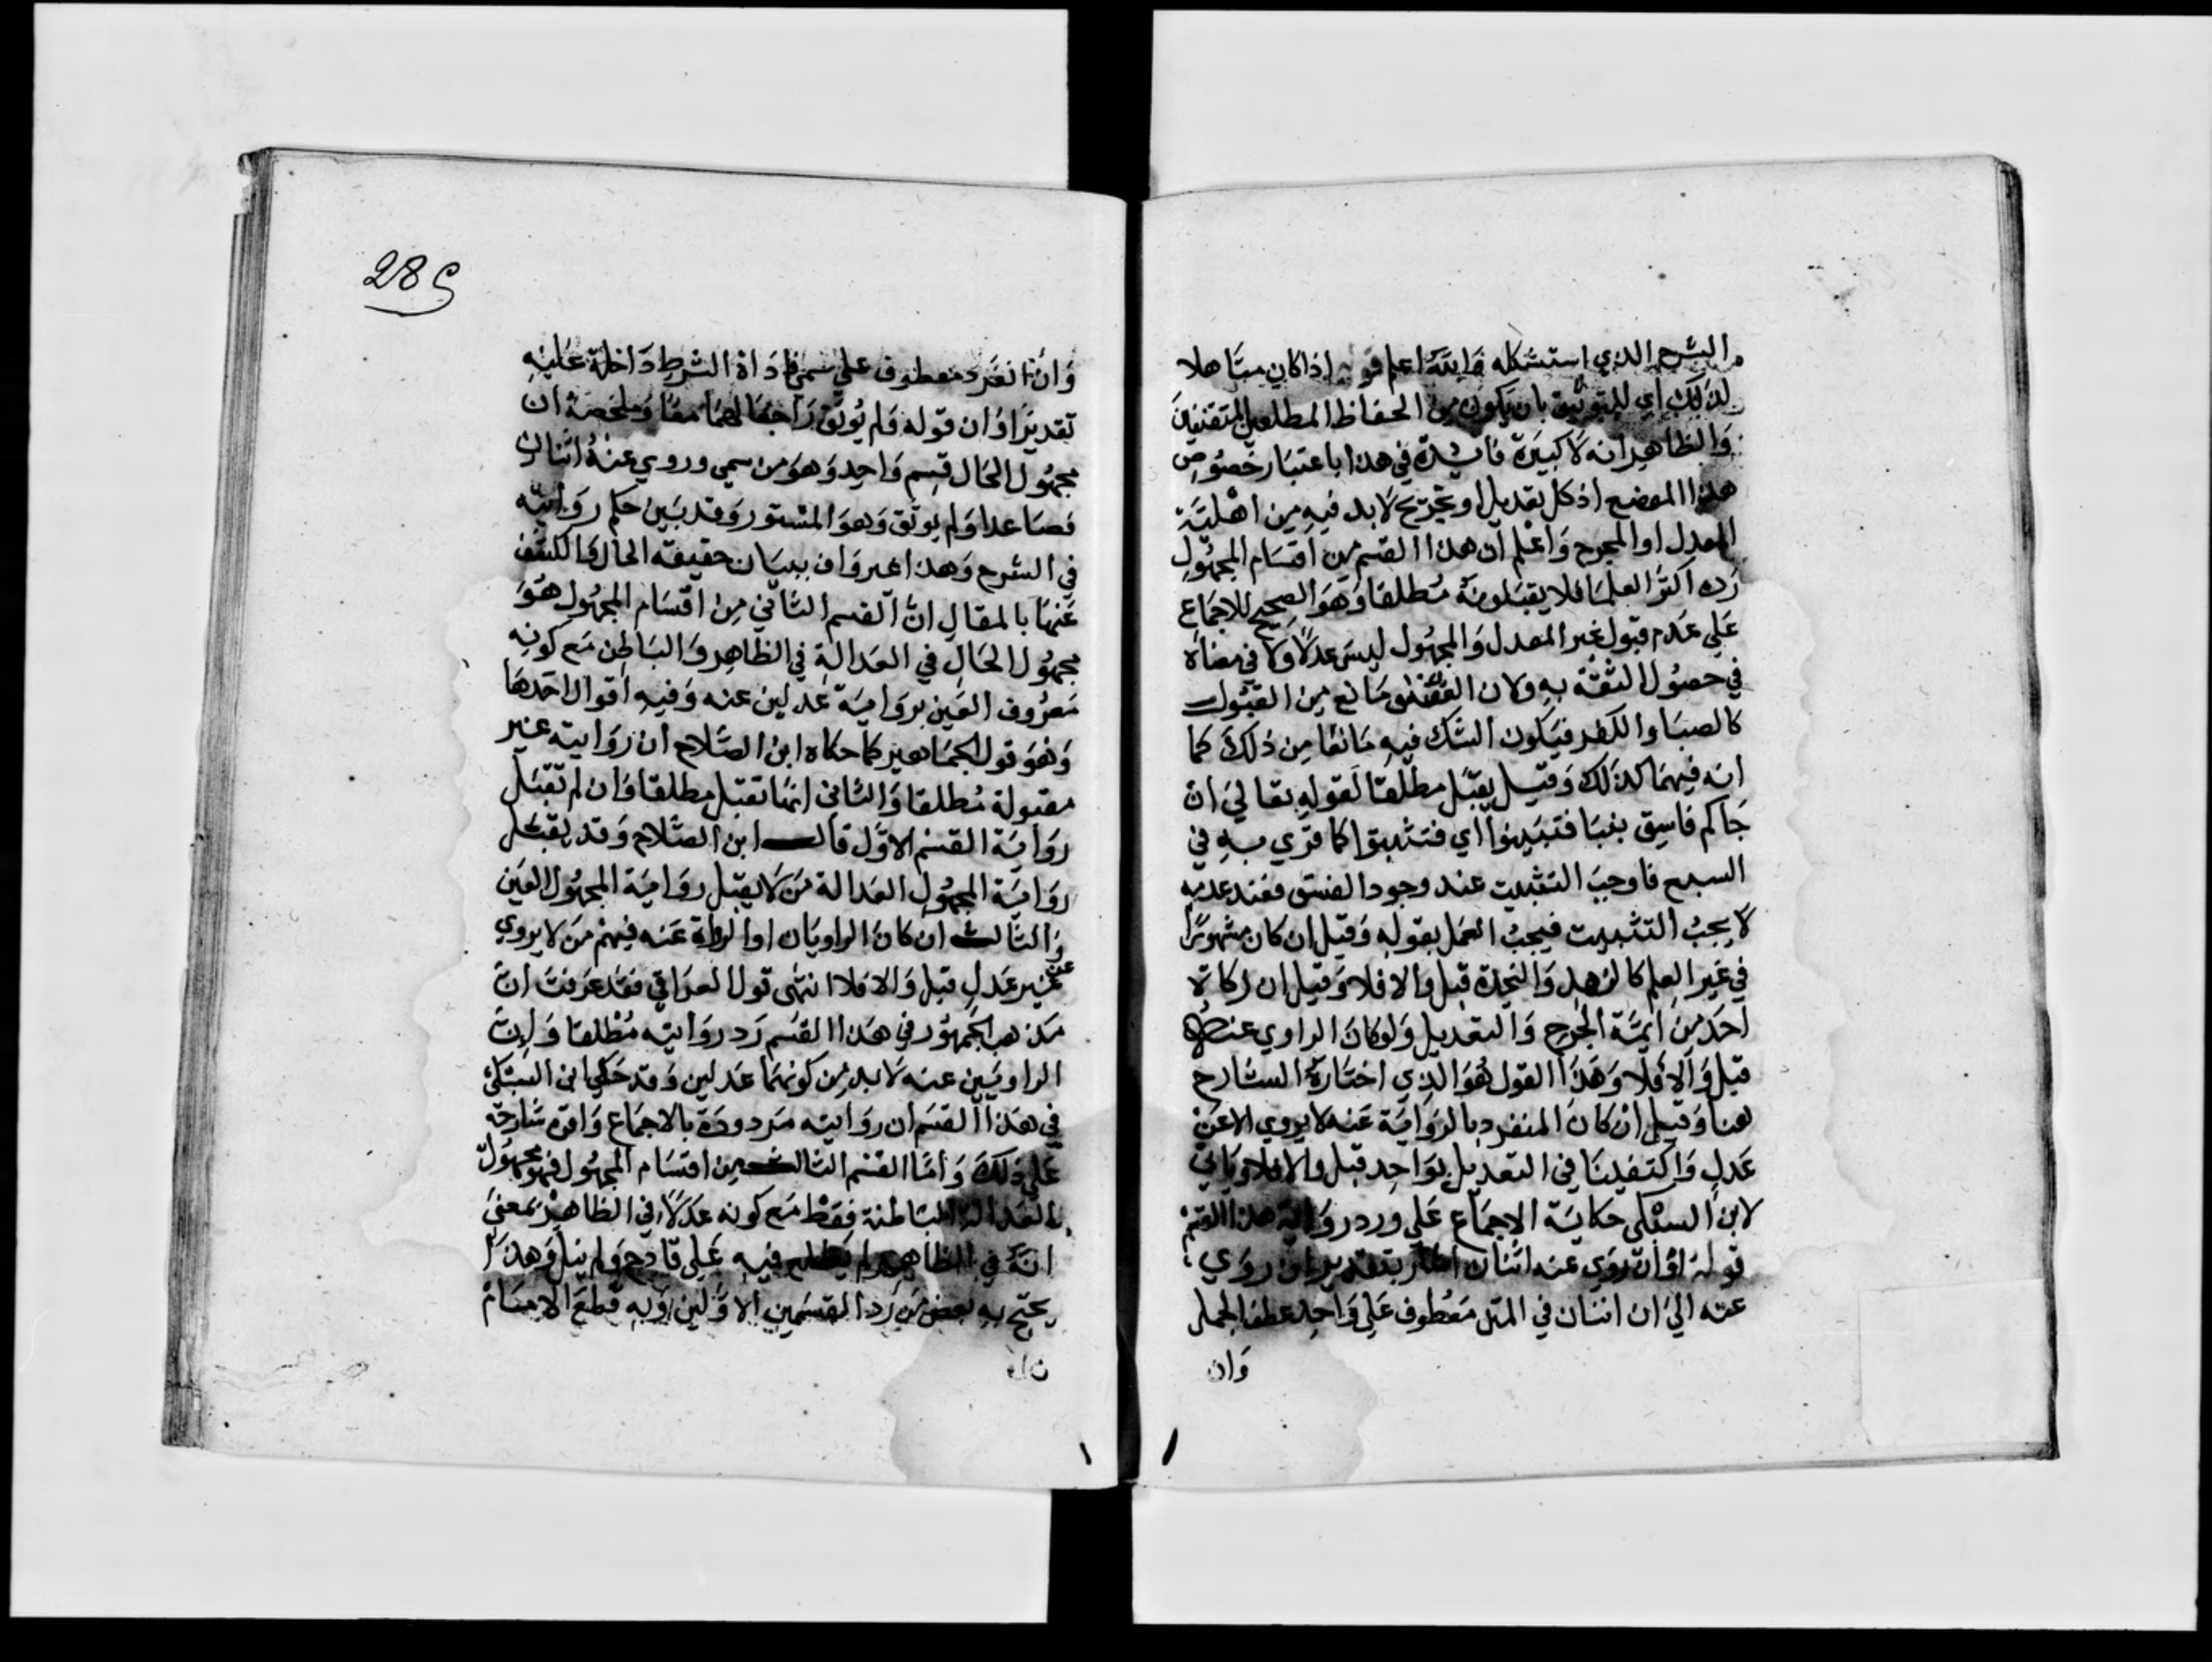 الشرح الذي استشكله والله اعلم قوله اذا كان متاهلا
لذلك اي للتوثيق بان يكون من الحفاظ المطلعين المتقنين
والظاهر انه لا كبيرة فائدة في هذا باعتبار خصوص
هذا الموضع اذ كل تعديل او تجريح لا بد فيه من اهلية
المعدل او المجرح واعلم ان هذا القسم من اقسام المجهول
رده اكثر العلما فلا يقبلونه مطلقا وهو الصحيح للاجماع
علي عدم قبول غير المعدل والمجهول ليس عدلا ولا في معناه
في حصول الثقة به ولان الفسق مانع من القبول
كالصبا والكفر فيكون الشك فيه مانعا من ذلك كما
انه فيهما كذلك وقيل يقبل مطلقا لقوله تعالي ان
جاكم فاسق بنبا فتبينوا اي فتثبتوا كما قري به في
السبع فاوجب التثبت عند وجود الفسق فعند عدمه
لا يجب التثبت فيجب العمل بقوله وقيل ان كان مشهورا
في غير العلم كالزهد والنجدة قبل والا فلا وقيل ان زكاه
احد من ايمة الجرح والتعديل ولو كان الراوي عنه
قبل والا فلا وهذا القول هو الذي اختاره الشارح
هنا وقيل ان كان المنفرد بالرواية عنه لا يروي الا عن
عدل واكتفينا في التعديل بواحد قبل والا فلا وياتي
لابن السبكي حكاية الاجماع علي ورد رواية هذا القسم
قوله او ان روي عنه اثنان اشار بتقدير ان روي
عنه الي ان اثنان في المتن معطوف علي واحد عطف الجمل
وان
285
وان انفرد معطوف علي سمي فاداة الشرط داخلة عليه
تقديرا وان قوله ولم يوثق راجعا لهما معا وملخصه ان
مجهول الحال قسم واحد وهو من سمي وروي عنه اثنان
فصاعدا ولم يوثق وهو المستور وقد بين حكم روايته
في الشرح وهذا غير واف ببيان حقيقة الحال والكشف
عنها بالمقال ان القسم الثاني من اقسام المجهول هو
مجهول الحال في العدالة في الظاهر والباطن مع كونه
معروف العين برواية عدلين عنه وفيه اقوال احدها
وهو قول الجماهير كما حكاه ابن الصلاح ان روايته غير
مقبولة مطلقا والثاني انها تقبل مطلقا وان لم تقبل
رواية القسم الاول قال ابن الصلاح وقد يقبل
رواية المجهول العدالة من لا يقبل رواية المجهول العين
والثالث ان كان الراويان او الرواة عنه فيهم من لا يروي
عن غير عدل قبل والا فلا انتهى قول العراقي فقد عرفت ان
مذهب الجمهور في هذا القسم رد روايته مطلقا وان
الراويين عنه لا بد من كونهما عدلين وقد حكي ابن السبكي
في هذا القسم ان روايته مردودة بالاجماع واقره شارحه
علي ذلك واما القسم الثالث من اقسام المجهول فهو مجهول
العدالة الباطنة فقط مع كونه عدلا في الظاهر بمعني
انه في الظاهر لم يطلع فيه علي قادح ولم يبل وهذا
يحتج به بعض من رد القسمين الاولين وبه قطع الامام